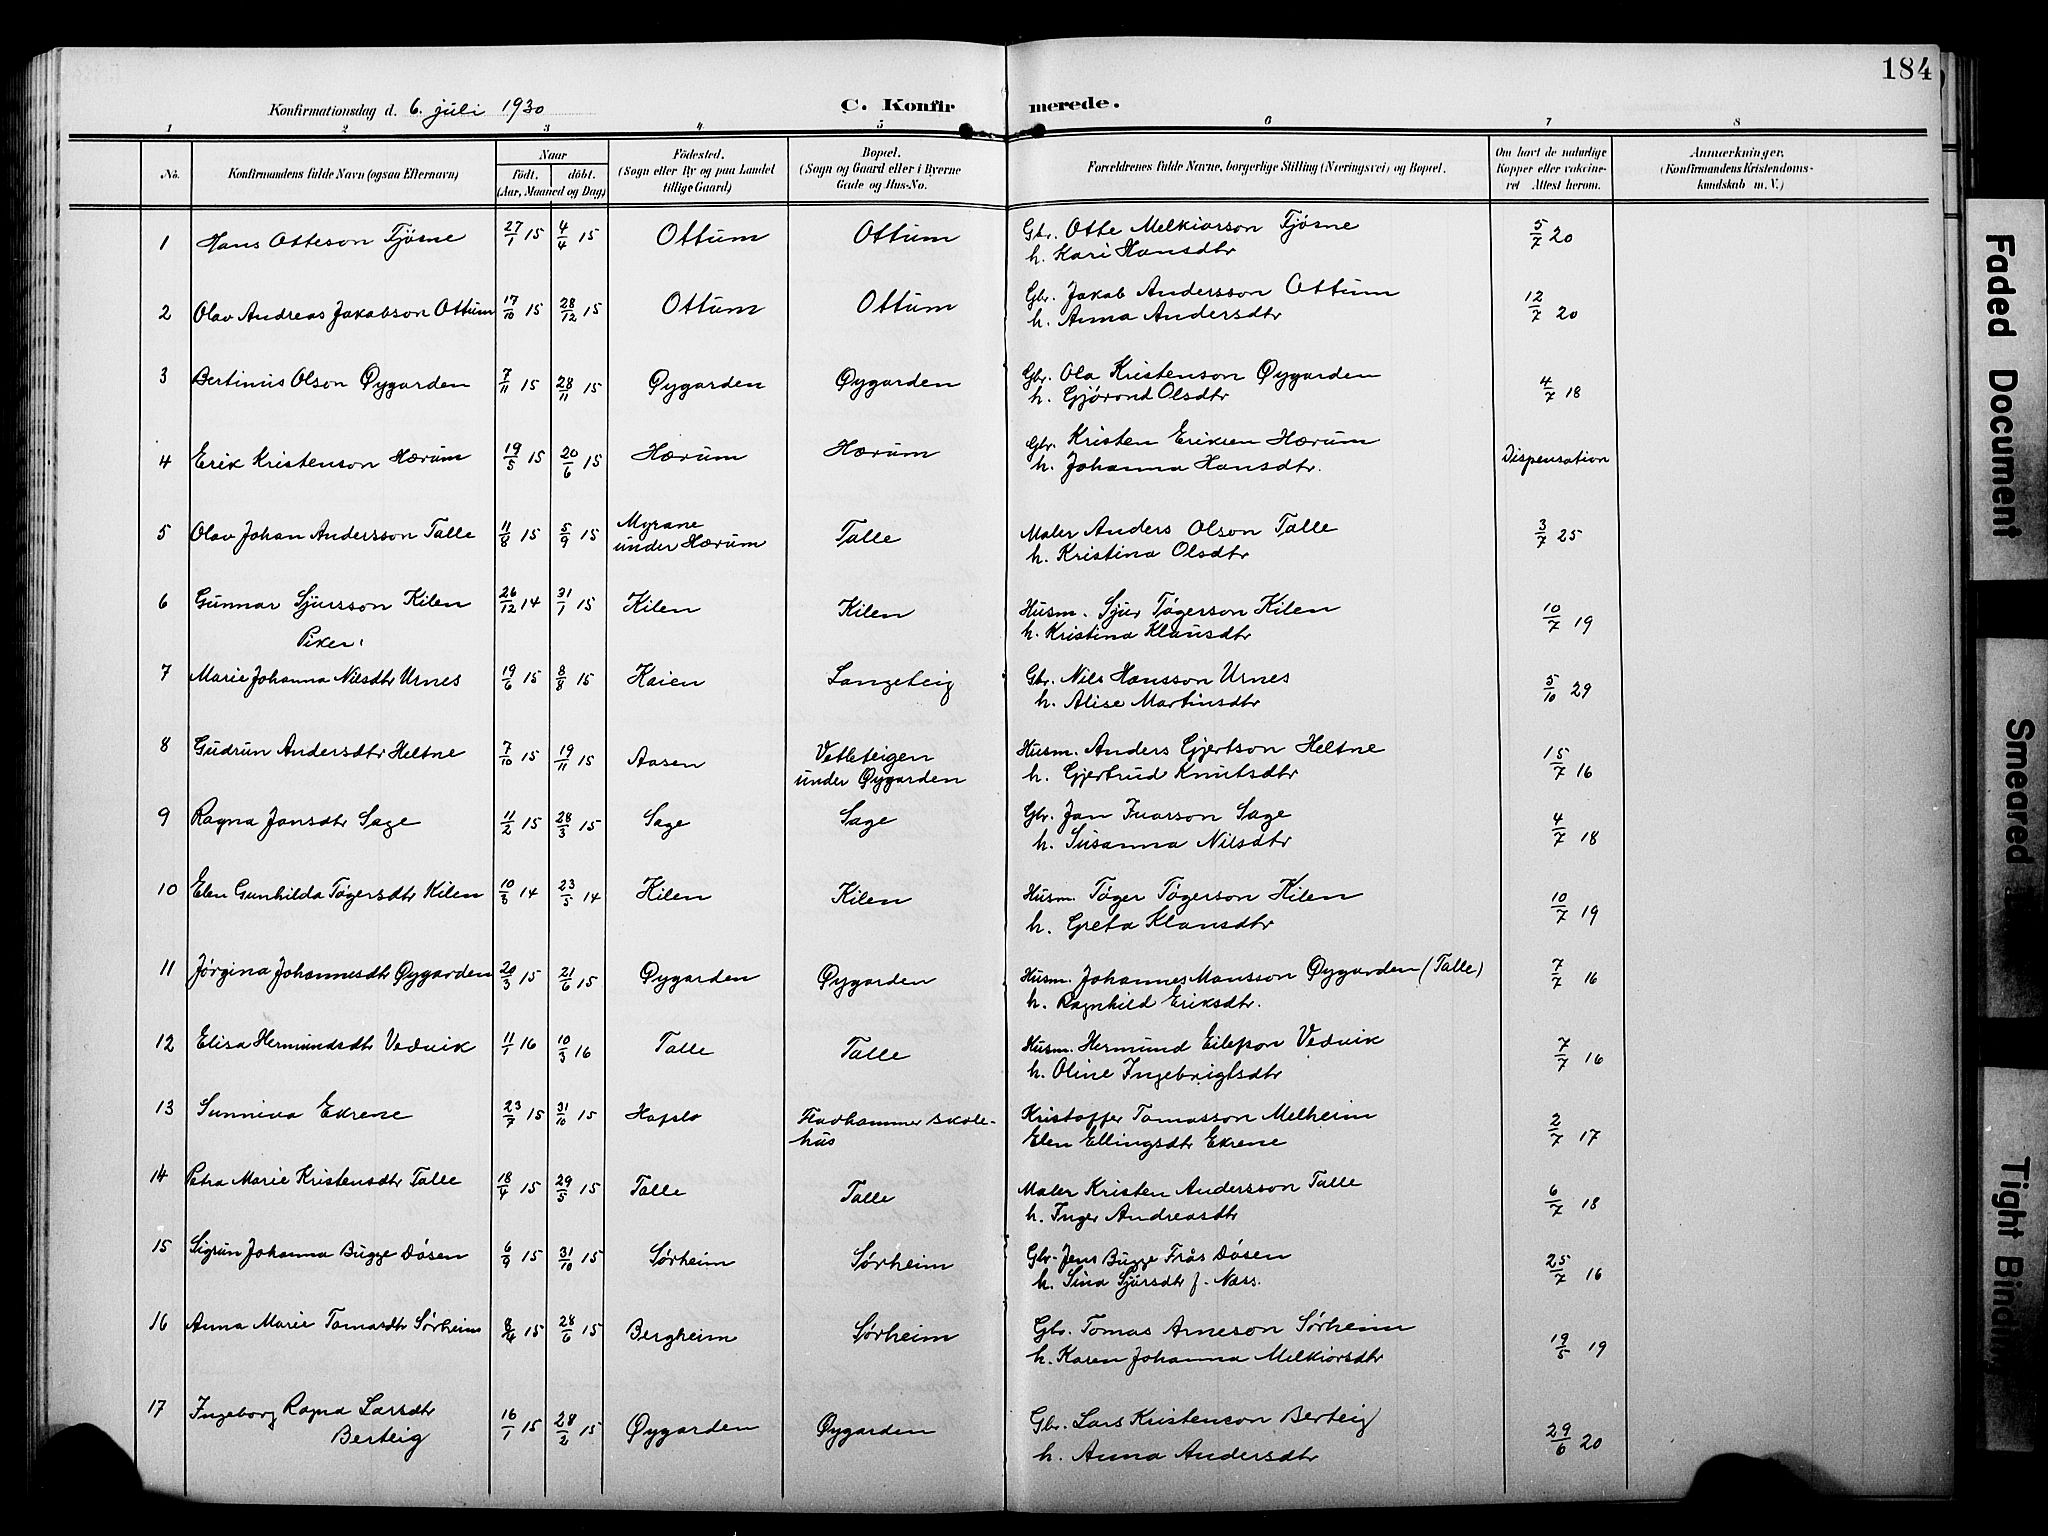 184
Konfirmationsdag d. 6. juli 1930
C. Konfirmerede.
1 2 3 4 5 6 7 8
No. Konfirmandens fulde Navn (ogsaa Efternavn) Naar født. døbt. (Aar, Maaned og Dag) Födested. (Sogn eller By og paa Landet tillige Gaard) Bopæl. (Sogn og Gaard eller i Byerne Gade og Hus-No. Forældrenes fulde Navne, borgerlige Stilling (Næringsvei) og Bopæl. Om havt de naturlige Kopper eller vaccineret Attest herom. Anmærkninger. (Konfirmandens Kristendomskundskab m. V.)
1 Hans Otteson Tjøsne 27/1 15 4/4 15 Ottum Ottum Gbr. Otte Melkiorson Tjøsne 5/7 20
h. Kari Hansdtr
2 Olav Andreas Jakobson Ottum 17/10 15 28/12 15 Ottum Ottum Gbr. Jakob Andersson Ottum 12/7 20
h. Anna Andersdtr
3 Bertinius Olson Øygarden 7/11 15 28/11 15 Øygarden Øygarden Gbr. Ola Kristenson Øygarden 4/7 18
h. Gjørond Olsdtr
4 Erik Kristenson Hærum 19/5 15 20/6 15 Hærum Hærum Gbr. Kristen Eriksen Hærum Dispensation
h. Johanna Hansdtr.
5 Olav Johan Andersson Talle 11/8 15 5/9 15 Myrane under Hærum Talle Maler Anders Olson Talle 3/7 25
h. Kristina Olsdtr
6 Gunnar Sjursson Kilen 26/12 14 31/1 15 Kilen Kilen Husm. Sjur Tøgerson Kilen 10/7 19
h. Kristina Klausdtr
Piker:
7 Marie Johanna Nilsdtr Urnes 19/6 15 8/8 15 Kaien Langeteig Gbr. Nils Hansson Urnes 5/10 29
h. Alise Martinsdtr
8 Gudrun Andersdtr Heltne 7/10 15 19/11 15 Aasen Vetleteigen under Øygarden Husm. Anders Gjertson Heltne 15/7 16
h. Gjertrud Knutsdtr
9 Ragna Jansdtr Sage 11/2 15 28/3 15 Sage Sage Gbr. Jan Ivarson Sage 4/7 18
h. Susanna Nilsdtr
10 Elen Gunhilda Tøgersdtr Kilen 14 23/5 14 Kilen Kilen Husm. Tøger Tøgerson Kilen 10/7 19
h. Greta Klausdtr
11 Jørgina Johannesdtr Øygarden 20/3 15 21/6 15 Øygarden Øygarden Husm. Johannes Monsson Øygarden (Talle) 7/7 16
h. Ragnhild Eriksdtr.
12 Elisa Hermundsdtr Vedvik 11/1 16 10/3 16 Talle Talle Husm. Hermund Eilifson Vedvik 7/7 16
h. Oline Ingebrigtsdtr
13 Sunniva Ekrene 23/7 15 31/10 15 Hafslo Fladhammer skolehus Kristoffer Tomasson Melheim 2/7 17
Elen Ellingsdtr Ekrene
14 Petra Marie Kristensdtr Talle 18/4 15 29/5 15 Talle Talle Maler Kristen Andersson Talle 6/7 18
h. Inger Andreasdtr
15 Sigrun Johanna Bugge Døsen 6/9 15 31/10 15 Sørheim Sørheim Gbr. Jens Bugge Frås Døsen 25/7 16
h. Sina Sjursdtr f. Næss.
16 Anna Marie Tomasdtr Sørheim 8/4 15 28/6 15 Bergheim Sørheim Gbr. Tomas Arneson Sørheim 19/5 19
h. Karen Johanna Melkiorsdtr
17 Ingeborg Ragna Larsdtr 16/1 15 28/2 15 Øygarden Øygarden Gbr. Lars Kristenson Berteig 29/6 20
Berteig h. Anna Andersdtr
Faded Document
Smeared
Tight Binding